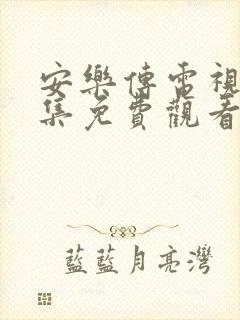 安樂傳電視
集免費觀看
藍藍月亮灣